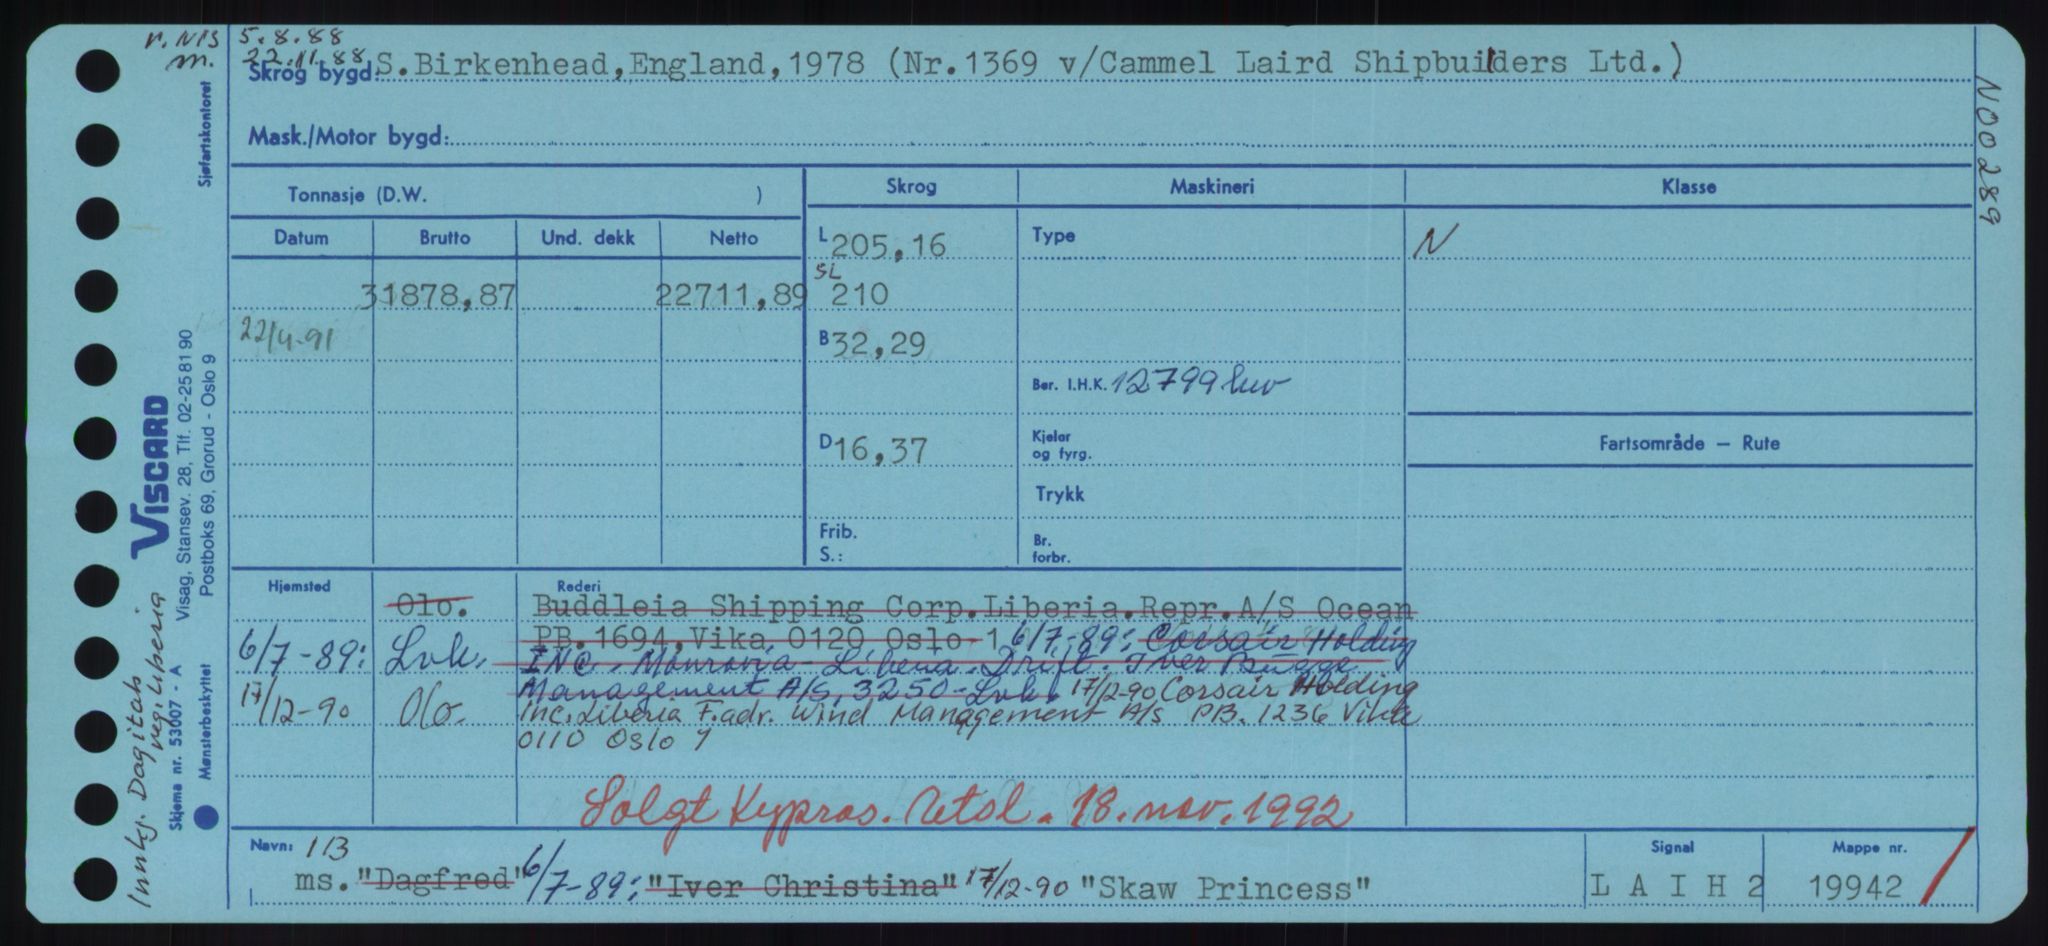 r. NIS 5.8.88
m. 22.11.88
Skrog bygd: S.Birkenhead,England,1978 (Nr.1369 v/Cammel Laird Shipbuilders Ltd.)
Mask./Motor bygd:
N00289
Sjøfartskontoret
Tonnasje (D.W. )
Skrog Maskineri Klasse
Datum Brutto Und. dekk Netto
L 205,16 Type N
31878,87 22711,89 SL 210
22/4-91 B 32,29
Ber. I.H.K. 12799
D 16,37 Kjelar og fyrg. Fartsområde — Rute
Trykk
Frib. S.: Br. forbr.
VISCARD
Visag, Stansev. 28, Tlf. 02-25 81 90
Postboks 69, Grorud - Oslo 9
Skjema nr. 53007 - A
Mønsterbeskyttet
Innkj. Dagitals
reg. Liberia
Hjemsted Rederi
Olo. Buddleia Shipping Corp.Liberia.Repr.A/S Ocean
PB.1694,Vika 0120 Oslo 1 6/7-89: Corsair Holding
6/7-89: Lvk. INC. Monrovia - Liberia. Drift. Iver Bugge
Management A/S, 3250 - Lvk. 17/12-90 Corsair Holding
17/12-90 Olo. Inc. Liberia F.adr. Wind Management A/S PB. 1236 Vika
0110 Oslo 1
Solgt Kypros. Utsl. 18. nov. 1992
Navn: 1B Signal Mappe nr.
ms. "Dagfred" 6/7-89: "Iver Christina" 17/12-90 "Skaw Princess" L A I H 2 19942